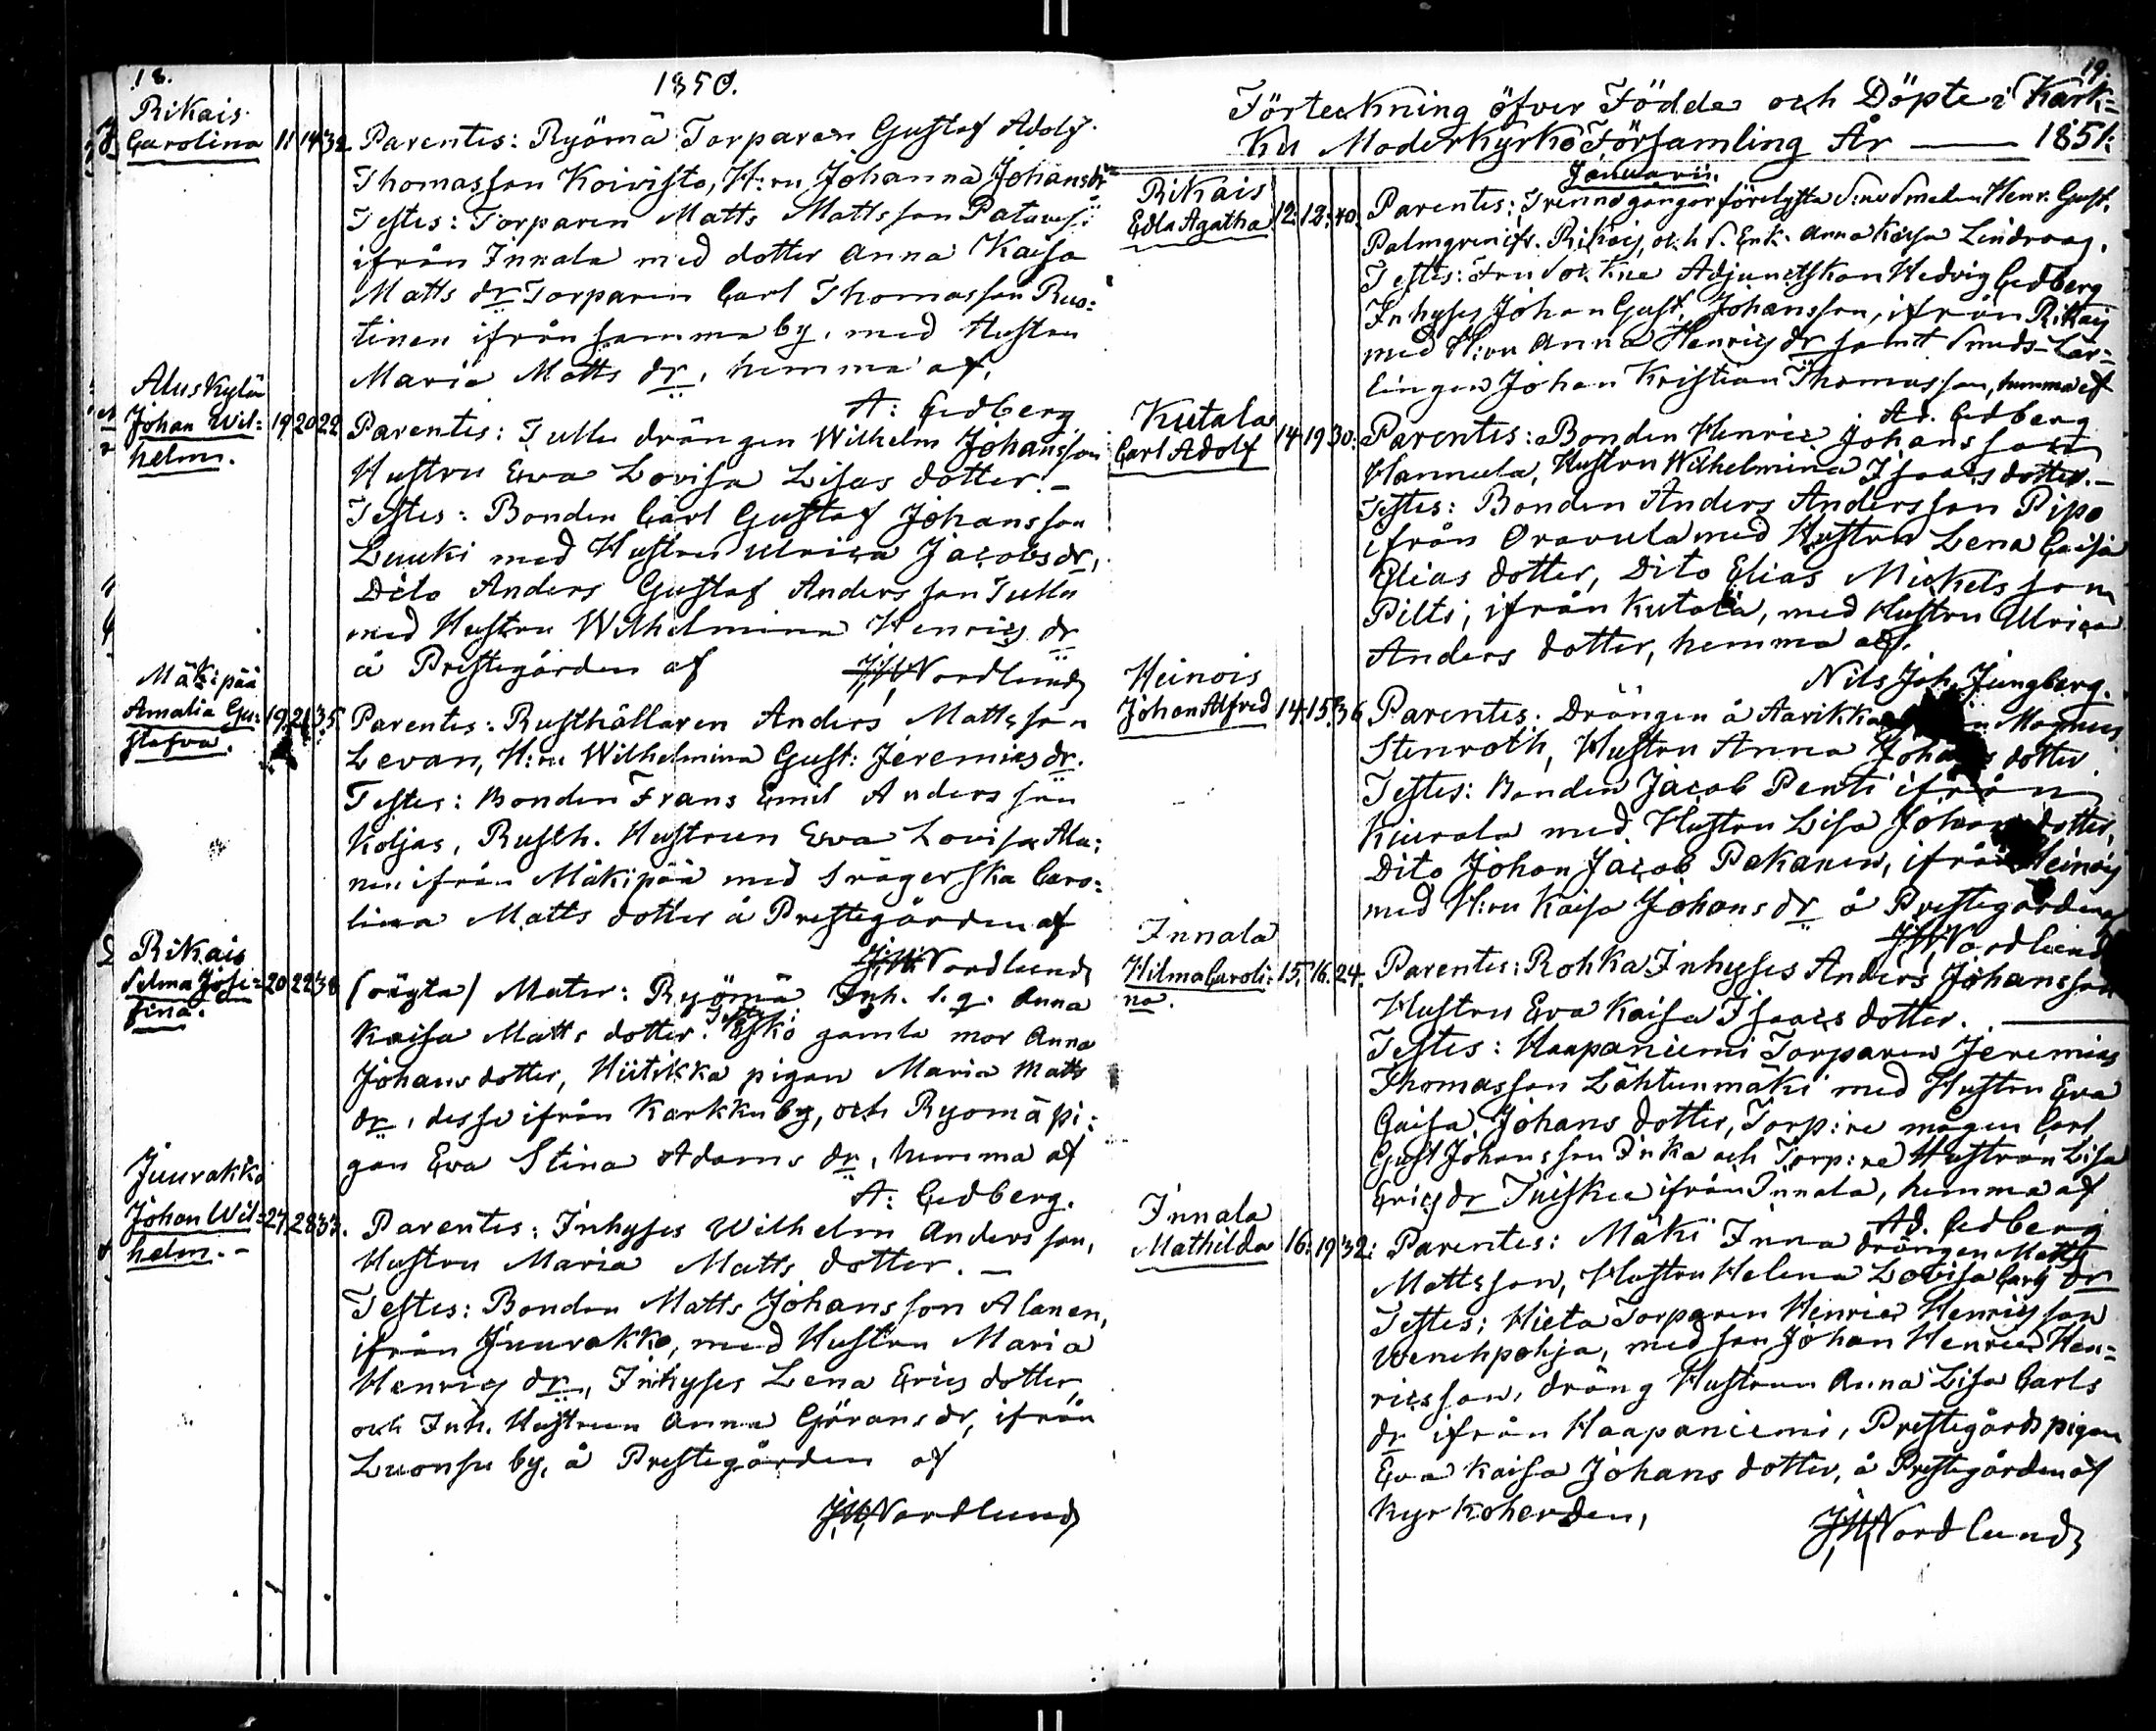 18.
1850.
Rikais
Carolina 11 14 32
Parentes: Ryömä Torparen Gustaf Adolf
Thomasson Koivisto, H:ru Johanna Johansdr
Testes: Torparen Matts Mattsson
ifrån Innala med dotter Anna Kaisa
Matts dr Torparen Carl Thomasson Rus=
tinen ifrån samma by, med Hustru
Maria Matts dr, hemma af,
A: Cedberg
Aluskylä
Johan Wil=
helm. 19 20 22
Parentes: Tulla drängen Wilhelm Johansson
Hustru Eva Lovisa Lisas dotter.–
Testes: Bonden Carl Gustaf Johansson
Luuki med Hustru Ulrica Jacobs dr,
Dito Anders Gustaf Andersson Tulla
med Hustru Wilhelmina Henrics dr
å Prestegården af JWNordlund
Mäkipää
Amalia Gu=
stafva. 19 21 35.
Parentes: Rusthållaren Anders Mattsson
Levan, H:ru Wilhelmina Gust: Jeremias dr.
Testes: Bonden Frans Emil Andersson
Koljas, Rusth. Hustrun Eva Lovisa Ala=
nen ifrån Mäkipää med Svägerska Caro=
lina Matts dotter å Prestegården af
JWNordlund
Rikais
Selma Jose=
fina. 20 22 38
(oägta) Mater: Ryömä Inh. l.q. Anna
Kaisa Matts dotter. Testes: Esko gamla mor Anna
Johans dotter, Hiitikka pigan Maria Matts
dr, desse ifrån Karkku by, och Ryömä pi=
gan Eva Stina Adams dr, hemma af
A: Cedberg.
Juurakko
Johan Wil=
helm.– 27. 28 33.
Parentes: Inhyses Wilhelm Andersson,
Hustru Maria Matts dotter.–
Testes: Bonden Matts Johansson Alanen,
ifrån Juurakko, med Hustru Maria
Henrics dr, Inhyses Lena Erics dotter,
och Inh. Hustrun Anna Görans dr, ifrån
Luonsu by, å Prestegården af
JWNordlund
19.
Förteckning öfver Födde och Döpte i Kark=
ku Moderkyrko Församling År — 1851:
Januarii.
Rikais
Edla Agatha. 12. 12. 40.
Parentes: Trenne gånger förelysta Henr. Gust.
Palmgren ifr. Rikais, och Enk. Anna Kaisa Lindroag.
Testes: Adjunctskan Hedvig Cedberg
Inhyses Johan Gust. Johansson, ifrån Rikais
med H:ru Anna Henrics dr samt Smeds Lär=
lingen Johan Kristian Thomasson, hemma af
Ad. Cedberg
Kutala
Carl Adolf 14 19 30:
Parentes: Bonden Henric Johansson
Hannula, Hustru Wilhelmina Isaacs dotter.–
Testes: Bonden Anders Andersson Pipo
ifrån Oravula med Hustru Lena Caisa
Elias dotter, Dito Elias Mickelsson
Pilti, ifrån Kutala, med Hustru Ulrica
Anders dotter, hemma af.
Nils Joh. Jungberg.
Heinois
Johan Alfred 14 15 36
Parentes: Drängen å Aarikka Magnus
Stenroth, Hustru Anna Johans dotter
Testes: Bonden Jacob Penti ifrån
Kiurala med Hustru Lisa Johans dotter,
Dito Johan Jacob Pakanen, ifrån Heinois
med H:ru Kaisa Johans dr å Prestegården af
JWNordlund
Innala
Hilma Caroli=
na. 15. 16. 24.
Parentes: Rohka Inhyses Anders Johansson
Hustru Eva Kaisa Isaacs dotter.
Testes: Haapaniemi Torparen Jeremias
Thomasson Lähteenmäki med Hustru Eva
Caisa Johans dotter, Torp:re mågen Carl
Gust Johansson Inka och Torp:re Hustrun Lisa
Erics dr Tuiskee ifrån Innala, hemma af
Ad. Cedberg
Innala
Mathilda 16. 19 32:
Parentes: Mäki Inna drängen Matts
Mattsson, Hustru Helena Lovisa Carls dr
Testes: Hieta Torparen Henric Henricsson
Wenehpohja, med son Johan Henric Hen=
ricsson, dräng Hustrun Anna Lisa Carls
dr ifrån Haapaniemi, Prestegårds pigan
Eva Kaisa Johans dotter, å Prestegården af
Kyrkoherden,
JWNordlund